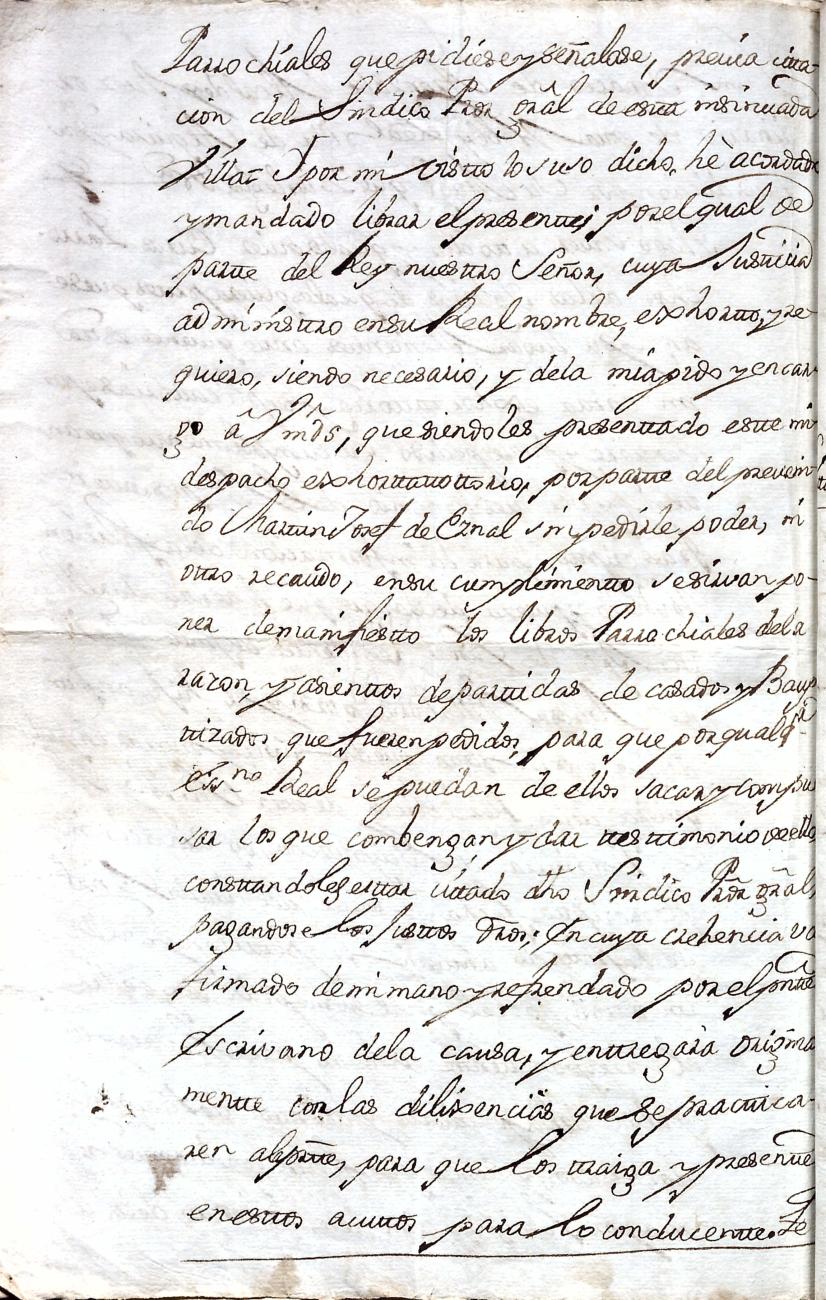 Parrochiales que pidiese y señalase, previa cita-
cion del Sindico Pror gral de esta insinuada
Villa= Y por mi visto lo suso dicho, hè acordado
y mandado librar el presente; por el qual de
parte del Rey nuestro Señor, cuya Justicia
administro en su Real nombre, exhorto, y re-
quiero, siendo necesario, y de la mia pido y encar-
go â Vmds, que siendoles presentado este mi
despacho exhortattorio, por parte del preveni-
do Martin Josef de Eznal sin pedirle poder, ni
otro recaudo, en su cumplimiento se sirvan po-
ner de manifiesto los libros Parrochiales de la
razon, y asientos de partidas de casados y Bau-
tizados que fueren pedidos, para que por qualqra
Essno Real se puedan de ellos sacar y compul
sar los que combengan y dar testimonio de ellos
constandoles estar citado dho Sindico Pror gral,
pagandose los justos dros; En cuya crehencia va
firmado de mi mano y refrendado por el pnte
Escrivano de la causa, y entregarà origina
mente con las dilixencias que se practica-
ren al parte, para que los traiga y presente
en estos autos para lo conducente. Fe